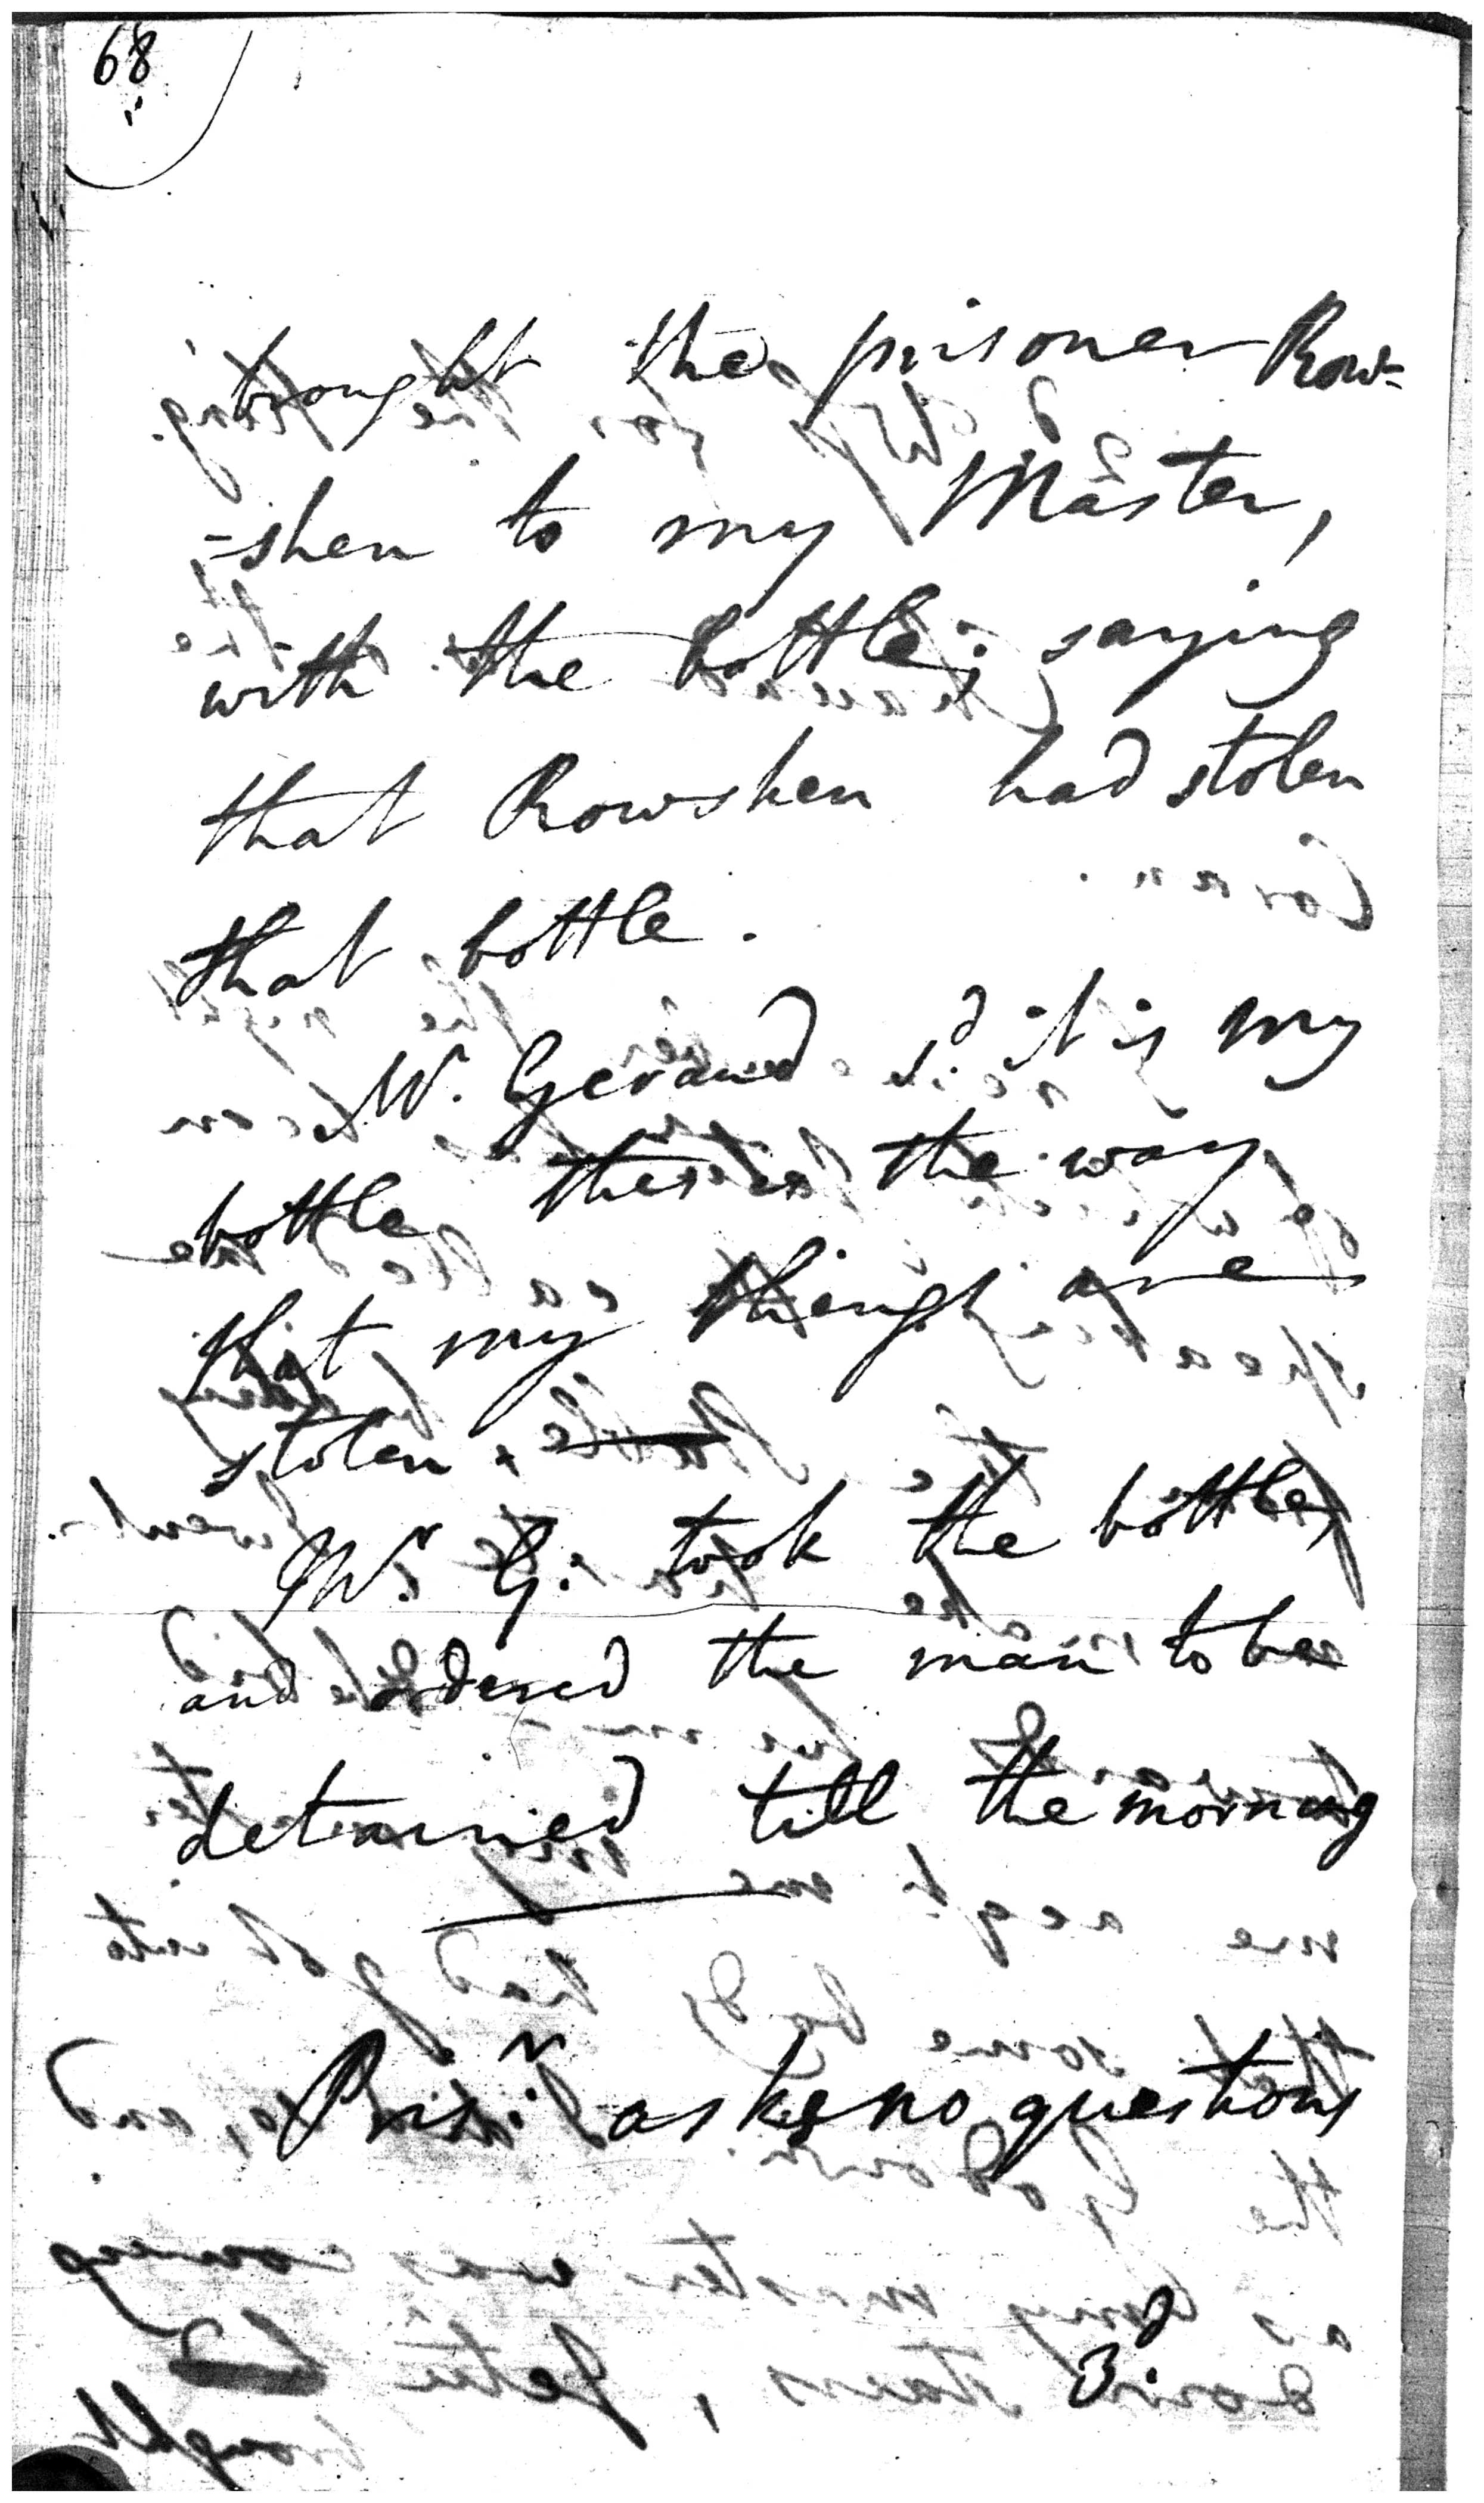 68
brought the prisoner Row-
-shen to my Master,
with the bottle; saying
that Rowshen had stolen
that bottle.
Mr. Geraud sd. it is my
bottle this is the way
that my things are
stolen.
Mr. G. took the bottle,
and ordered the man to be
detained till the morning
Prisr. asks no questions
3d.